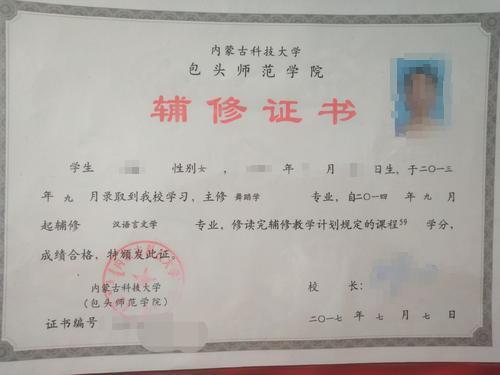 内蒙古科技大学
包头师范学院
辅修证书
学生 性别女, 年 月 日生,于二〇一三
年九月录取到我校学习,主修 舞蹈学 专业,自二〇一四年九月
起辅修 汉语言文学 专业,修读完辅修教学计划规定的课程59 学分,
成绩合格,特颁发此证。
内蒙古科技大学
(包头师范学院)
校 长:
证书编号
二〇一七年 七 月 七 日